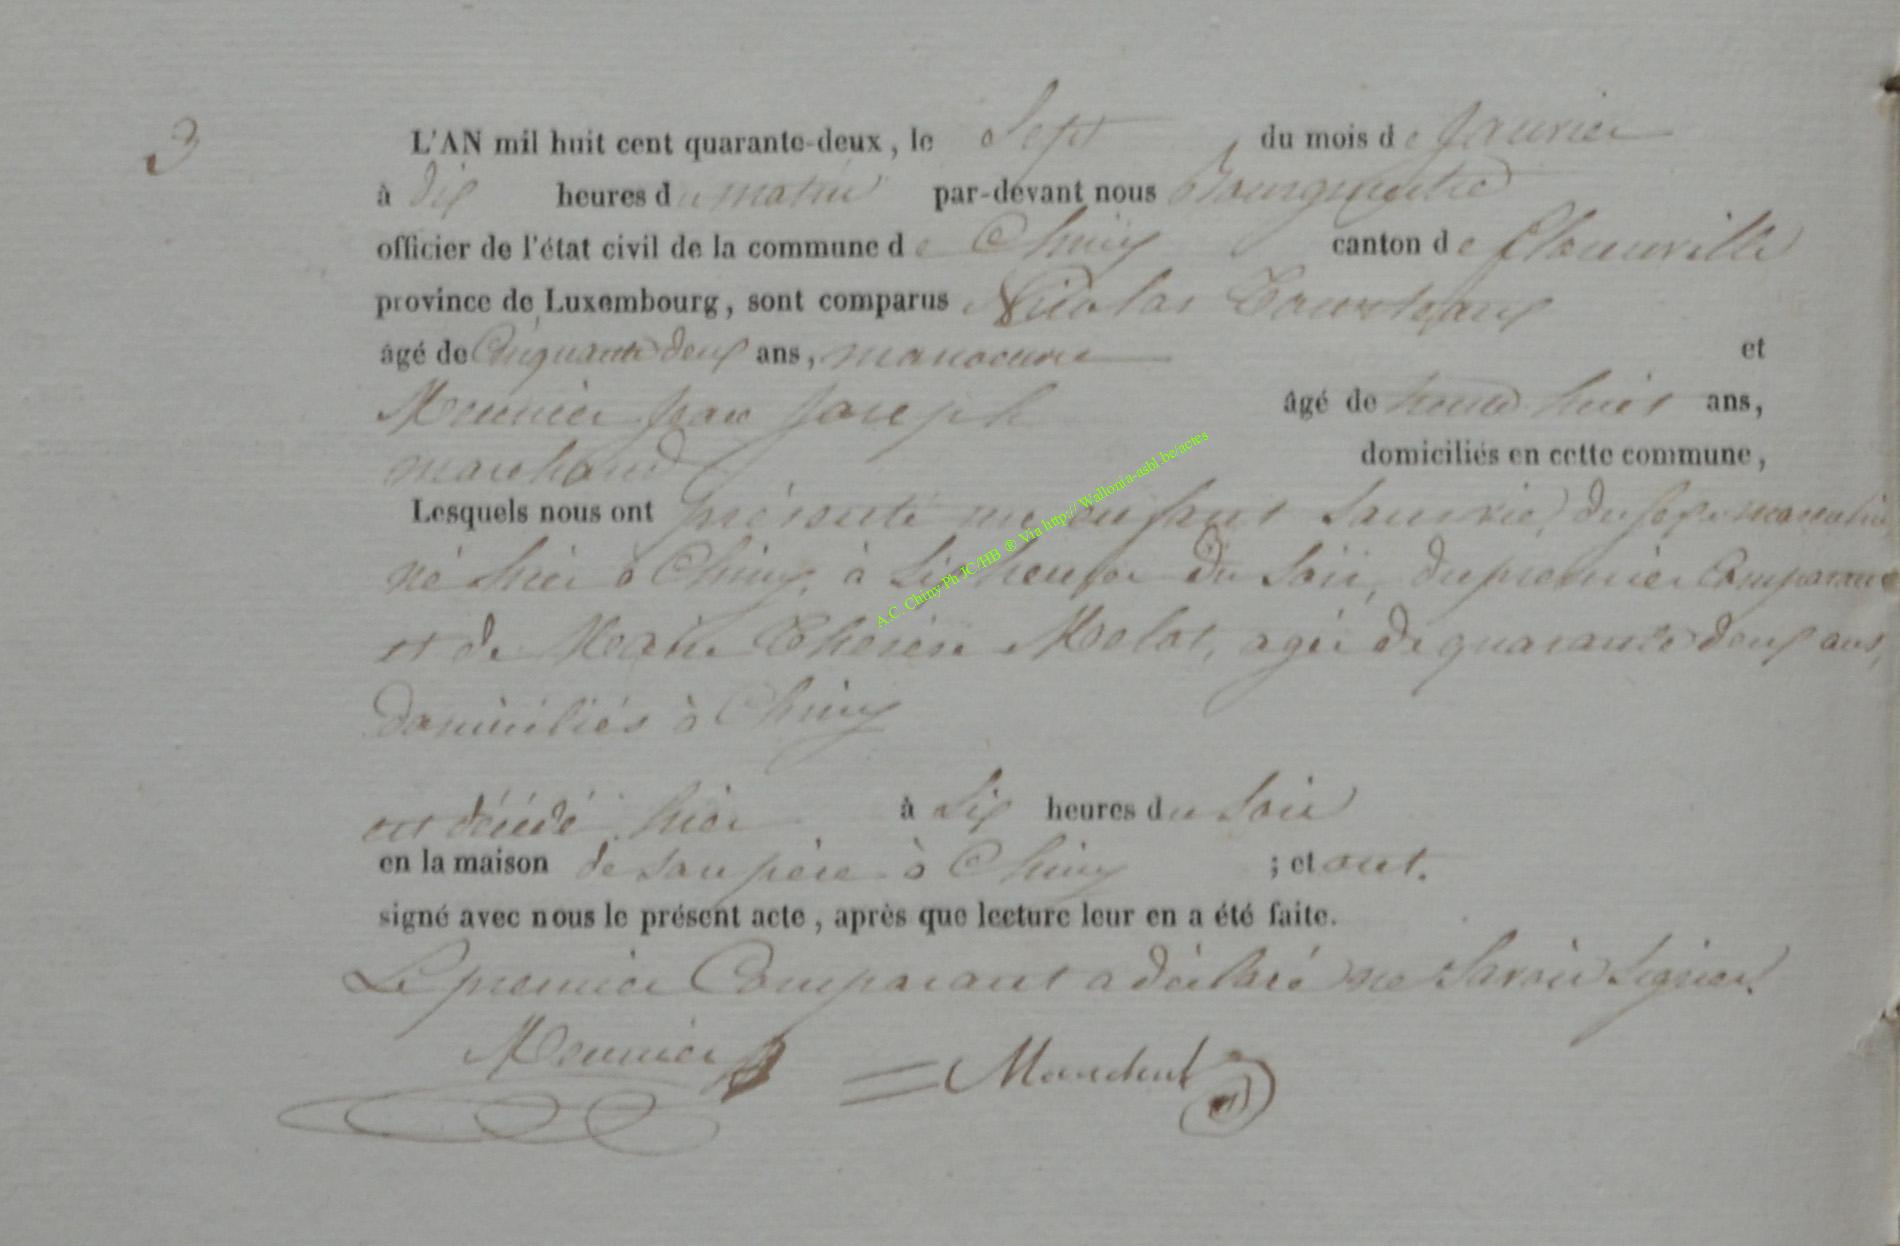 3
L'AN mil huit cent quarante-deux, le Sept du mois de Janvier
à dix heures du matin par-devant nous Bourgmestre
officier de l'état civil de la commune de Chiny canton de Florenville
province de Luxembourg, sont comparus Nicolas
âgé de Cinquante deux ans, manoeuvre et
Meunier Jean Joseph âgé de trente huit ans,
marchand domiciliés en cette commune,
Lesquels nous ont présenté un enfant sans vie, du sexe masculin
né hier à Chiny, à six heures du soir, du premier Comparant
et de Marie Therese Melot, agée de quarante deux ans,
domiciliés à Chiny
est décédé hier à six heures du soir
en la maison de son père à Chiny ; et ont.
signé avec nous le présent acte, après que lecture leur en a été faite.
Le premier Comparant a déclaré ne savoir signer.
Meunier
A.C. Chiny Ph JC/HB ® Via http:// Wallonia-asbl.be/actes